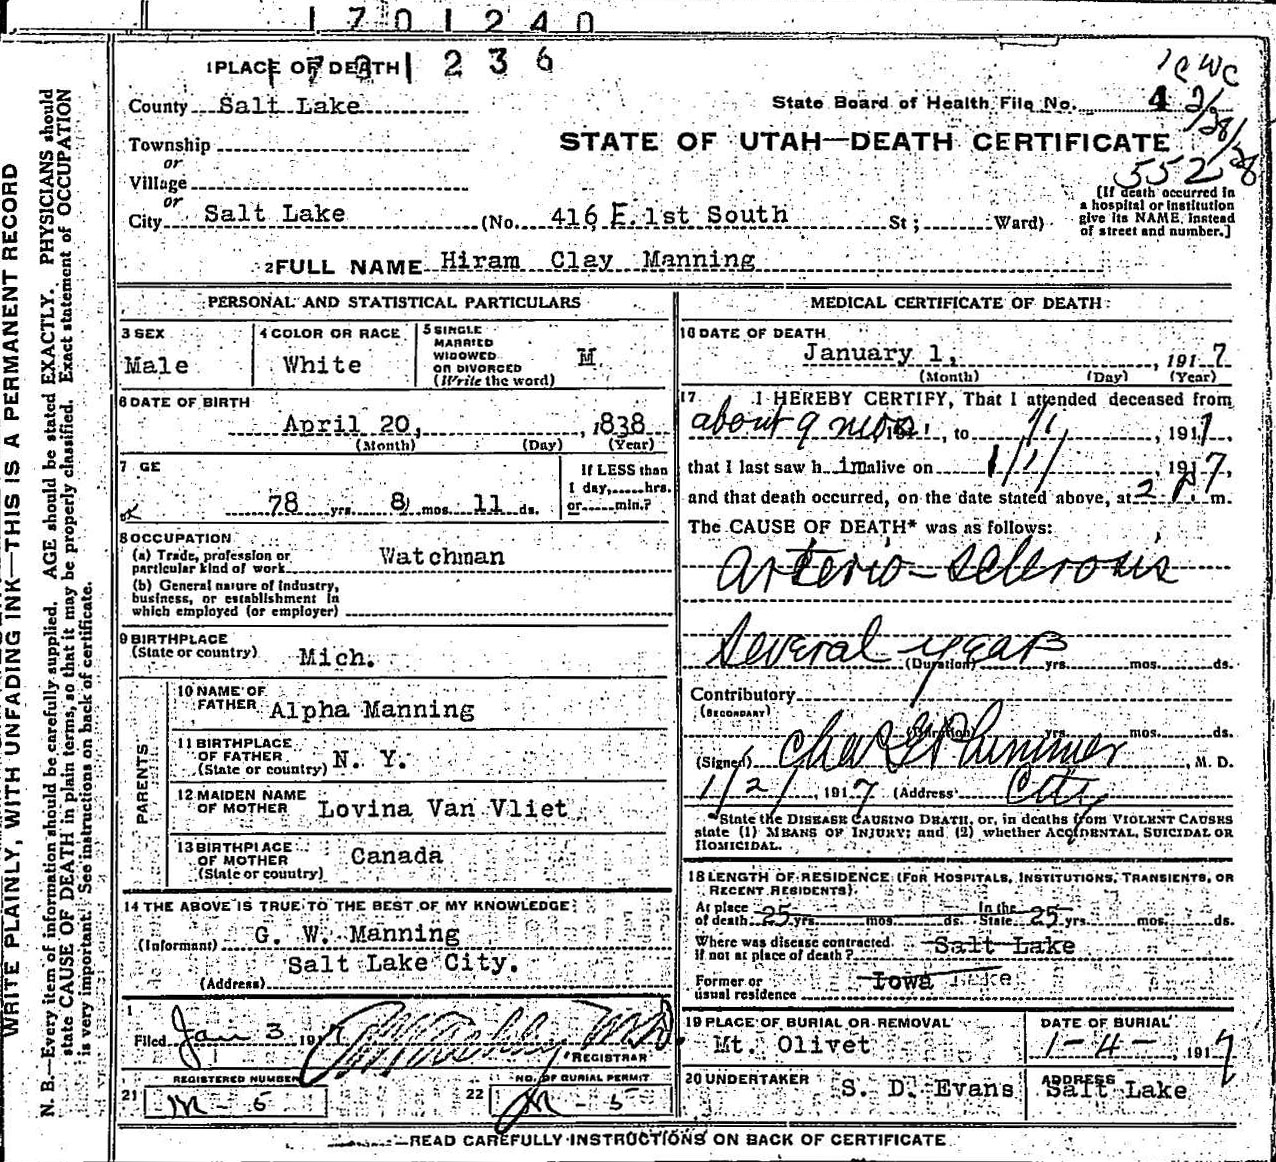 1701240
1701236
1 PLACE OF DEATH
County Salt Lake
State Board of Health File No. 4
2/28/28
STATE OF UTAH—DEATH CERTIFICATE
552
Township
or
Village
or
City Salt Lake (No. 416 E. 1st South St; Ward)
(If death occurred in
a hospital or institution
give its NAME, instead
of street and number.]
2 FULL NAME Hiram Clay Manning
PERSONAL AND STATISTICAL PARTICULARS
3 SEX
Male
4 COLOR OR RACE
White
5 SINGLE
MARRIED
WIDOWED
OR DIVORCED
(Write the word)
M.
6 DATE OF BIRTH
April 20, 1838
(Month) (Day) (Year)
7 GE
78 yrs. 8 mos. 11 ds.
If LESS than
1 day,.....hrs.
or.....min.?
8 OCCUPATION
(a) Trade, profession or
particular kind of work Watchman
(b) General nature of industry,
business, or establishment in
which employed (or employer)
9 BIRTHPLACE
(State or country) Mich.
PARENTS
10 NAME OF
FATHER Alpha Manning
11 BIRTHPLACE
OF FATHER
(State or country) N. Y.
12 MAIDEN NAME
OF MOTHER Lovina Van Vliet
13 BIRTHPLACE
OF MOTHER
(State or country) Canada
14 THE ABOVE IS TRUE TO THE BEST OF MY KNOWLEDGE
(Informant) G. W. Manning
Salt Lake City.
(Address)
Filed Jan 3 1917
REGISTRAR
REGISTERED NUMBER
21 M - 5
NO. OF BURIAL PERMIT
22 M - 5
MEDICAL CERTIFICATE OF DEATH
16 DATE OF DEATH
January 1, 1917
(Month) (Day) (Year)
17 I HEREBY CERTIFY, That I attended deceased from
about 9 mos 191 , to 1/1/ , 1917.
that I last saw h im alive on 1/1/ 1917,
and that death occurred, on the date stated above, at 2 P. m.
The CAUSE OF DEATH* was as follows:
Arterio-Sclerosis
Several years
(Duration) yrs. mos. ds.
Contributory
(SECONDARY)
(Duration) yrs. mos. ds.
(Signed) Chas G Plummer, M. D.
1/2/, 1917 (Address) City
*State the DISEASE CAUSING DEATH, or, in deaths from VIOLENT CAUSES
state (1) MEANS OF INJURY; and (2) whether ACCIDENTAL, SUICIDAL OR
HOMICIDAL.
18 LENGTH OF RESIDENCE (FOR HOSPITALS, INSTITUTIONS, TRANSIENTS, OR
RECENT RESIDENTS).
At place
of death 25 yrs. mos. ds. In the State 25 yrs. mos. ds.
Where was disease contracted
if not at place of death? Salt Lake
Former or
usual residence Iowa Lake
19 PLACE OF BURIAL OR REMOVAL
Mt. Olivet
DATE OF BURIAL
1-4-, 1917
20 UNDERTAKER S. D. Evans
ADDRESS
Salt Lake
READ CAREFULLY INSTRUCTIONS ON BACK OF CERTIFICATE
WRITE PLAINLY, WITH UNFADING INK—THIS IS A PERMANENT RECORD
N. B.—Every item of information should be carefully supplied. AGE should be stated EXACTLY. PHYSICIANS should
state CAUSE OF DEATH in plain terms, so that it may be properly classified. Exact statement of OCCUPATION
is very important. See instructions on back of certificate.